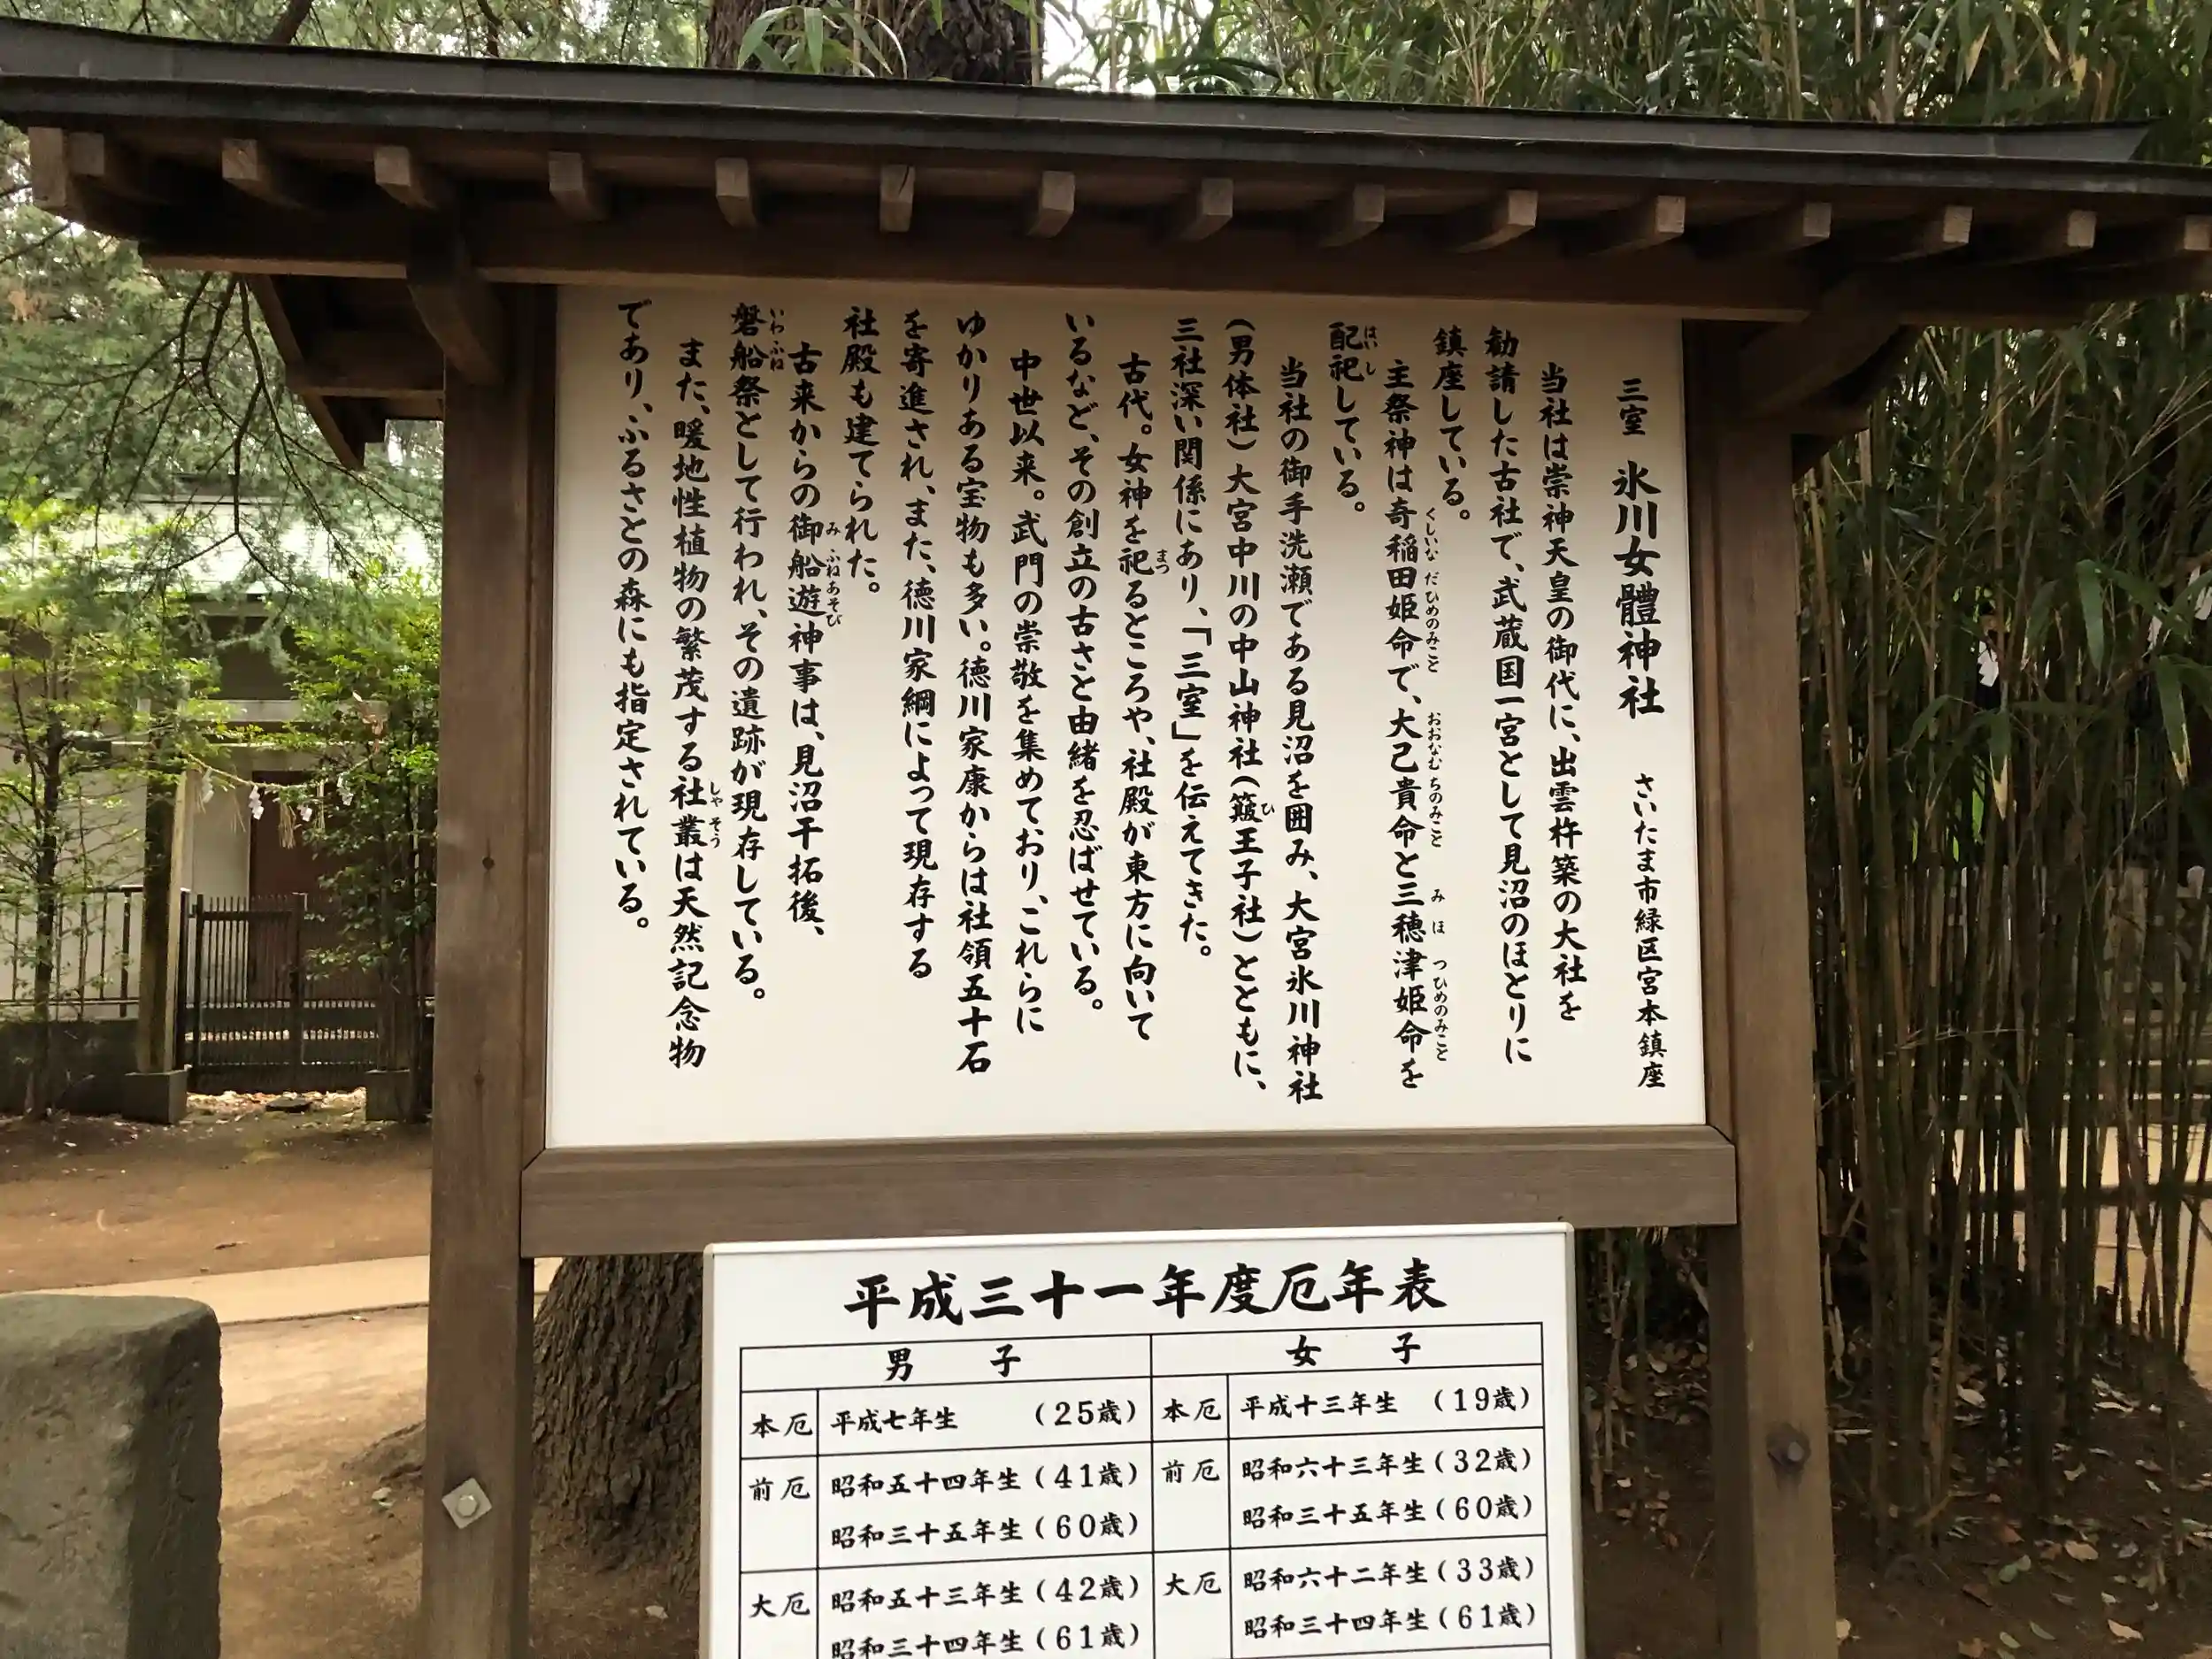 三室 氷川女體神社 さいたま市緑区宮本鎮座
当社は崇神天皇の御代に、出雲杵築の大社を
勧請した古社で、武蔵国一宮として見沼のほとりに
鎮座している。
主祭神は奇稲田姫命で、大己貴命と三穂津姫命を
くしいなだひめのみこと おおなむちのみこと みほつひめのみこと
配祀している。
はいし
当社の御手洗瀬である見沼を囲み、大宮氷川神社
(男体社)大宮中川の中山神社(簸王子社)とともに、
ひ
三社深い関係にあり、「三室」を伝えてきた。
古代。女神を祀るところや、社殿が東方に向いて
まつ
いるなど、その創立の古さと由緒を忍ばせている。
中世以来。武門の崇敬を集めており、これらに
ゆかりある宝物も多い。徳川家康からは社領五十石
を寄進され、また、徳川家綱によって現存する
社殿も建てられた。
古来からの御船遊神事は、見沼干拓後、
みふねあそび
磐船祭として行われ、その遺跡が現存している。
いわふね
また、暖地性植物の繁茂する社叢は天然記念物
しゃそう
であり、ふるさとの森にも指定されている。
平成三十一年度厄年表
男子 女子
本厄 平成七年生 (25歳) 本厄 平成十三年生 (19歳)
前厄 昭和五十四年生(41歳) 前厄 昭和六十三年生(32歳)
昭和三十五年生(60歳) 昭和三十五年生(60歳)
大厄 昭和五十三年生(42歳) 大厄 昭和六十二年生(33歳)
昭和三十四年生(61歳) 昭和三十四年生(61歳)